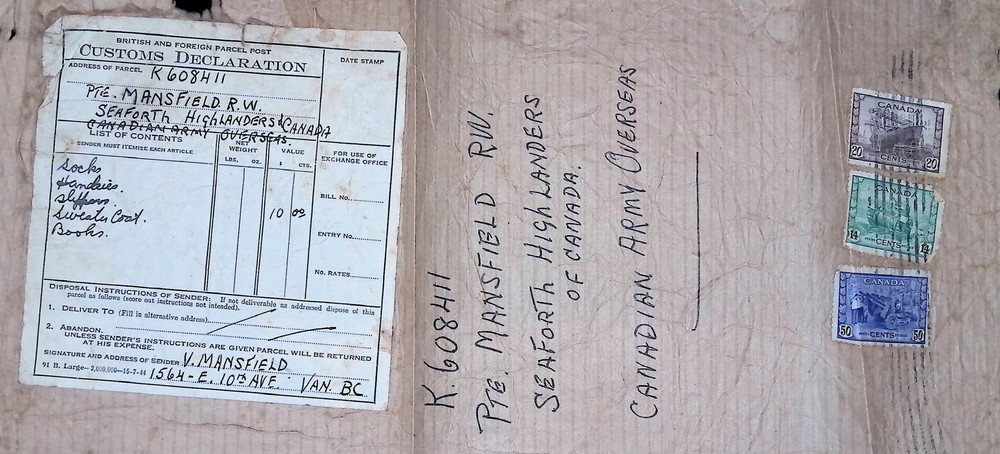 BRITISH AND FOREIGN PARCEL POST
CUSTOMS DECLARATION
DATE STAMP
ADDRESS OF PARCEL K608411
PTE. MANSFIELD R.W.
SEAFORTH HIGHLANDERS of CANADA
CANADIAN ARMY OVERSEAS.
LIST OF CONTENTS
SENDER MUST ITEMIZE EACH ARTICLE
NET WEIGHT
LBS. OZ.
VALUE
$ CTS.
FOR USE OF EXCHANGE OFFICE
Socks
Handkies.
Slippers
Sweater Coat.
Books.
10 00
BILL No.
ENTRY No.
No. RATES
DISPOSAL INSTRUCTIONS OF SENDER: If not deliverable as addressed dispose of this
parcel as follows (score out instructions not intended).
1. DELIVER TO (Fill in alternative address)
2. ABANDON.
UNLESS SENDER'S INSTRUCTIONS ARE GIVEN PARCEL WILL BE RETURNED
AT HIS EXPENSE.
SIGNATURE AND ADDRESS OF SENDER V. MANSFIELD
91 B. Large—2,000,000—15-7-44 1564-E. 10TH AVE. VAN. BC.
K.608411
PTE. MANSFIELD RW.
SEAFORTH HIGHLANDERS
OF CANADA.
CANADIAN ARMY OVERSEAS
CANADA
20 CENTS 20
CANADA
14 CENTS 14
CANADA
50 CENTS 50